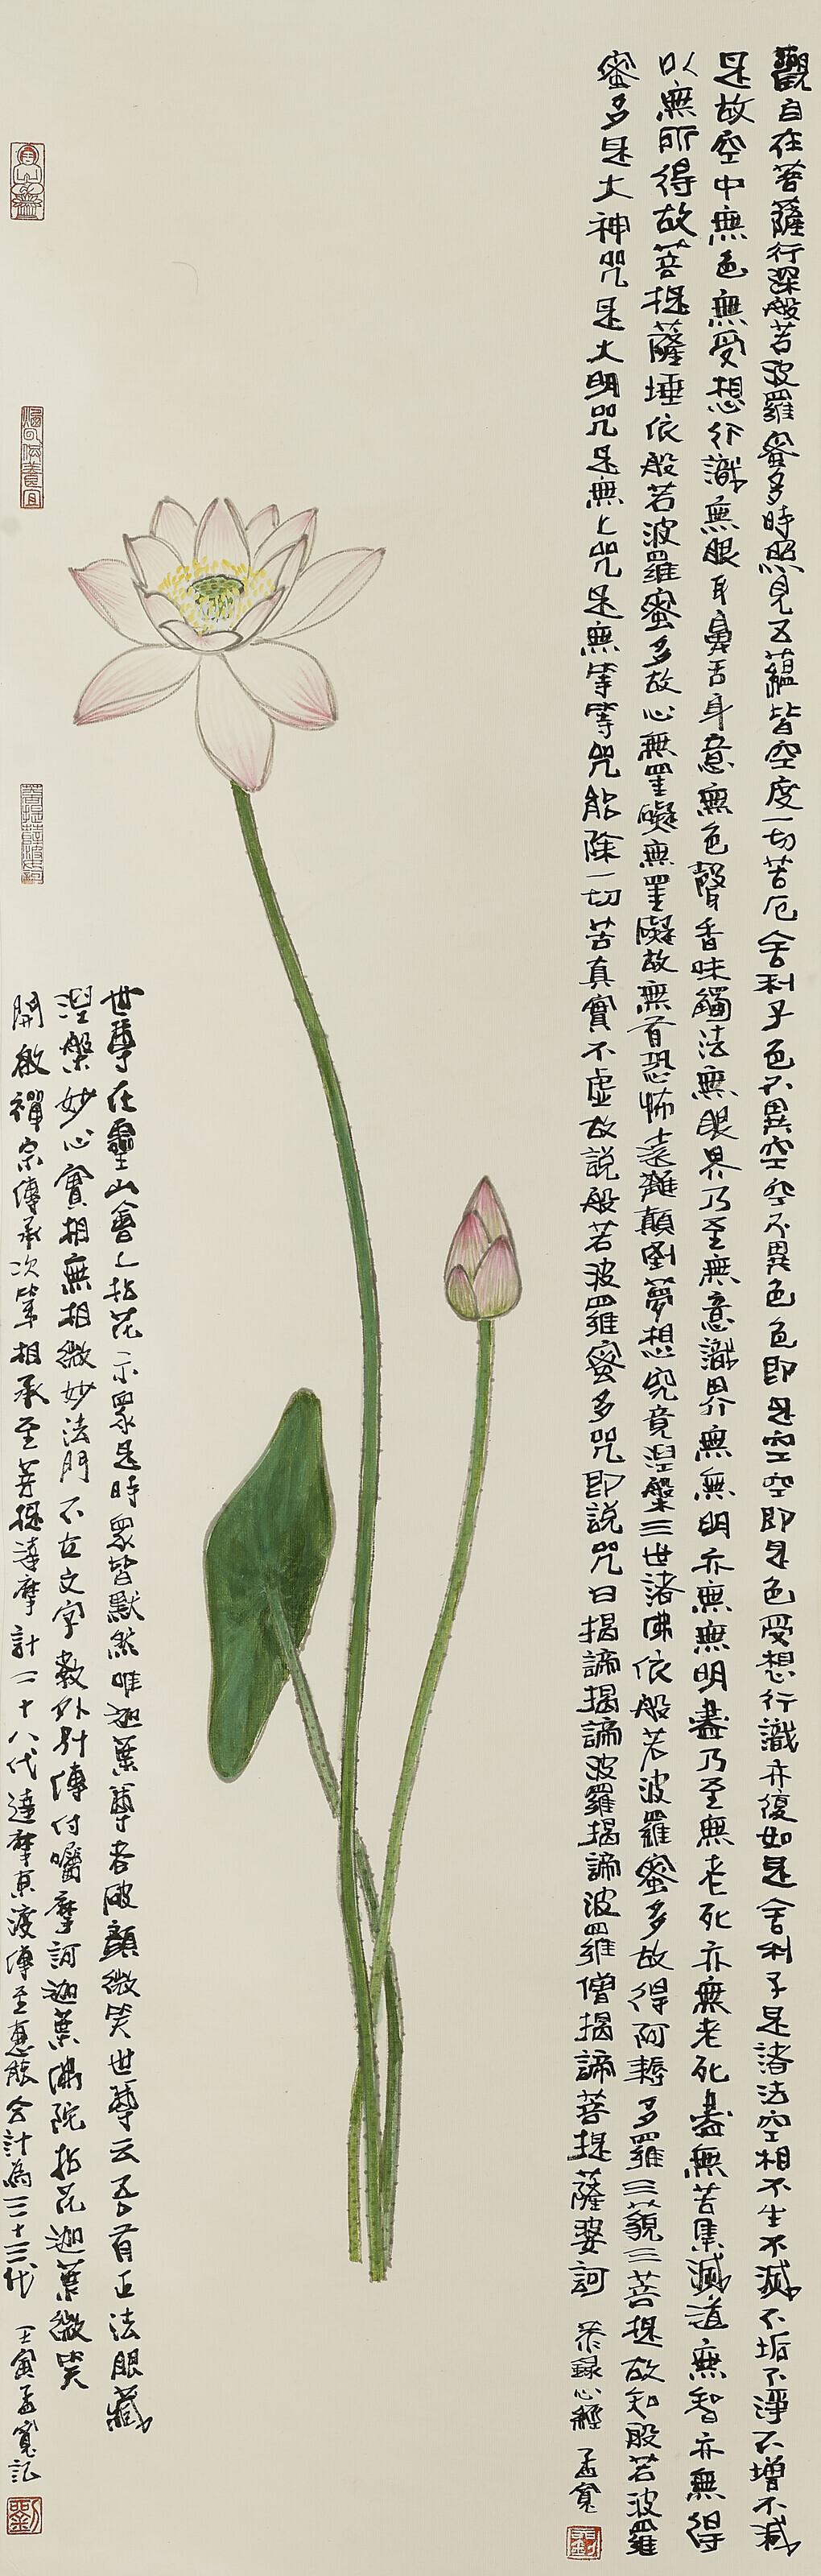 觀自在菩薩行深般若波羅蜜多時照見五蘊皆空度一切苦厄舍利子色不異空空不異色色即是空空即是色受想行識亦復如是舍利子是諸法空相不生不滅不垢不淨不增不減
是故空中無色無受想行識無眼耳鼻舌身意無色聲香味觸法無眼界乃至無意識界無無明亦無無明盡乃至無老死亦無老死盡無苦集滅道無智亦無得
以無所得故菩提薩埵依般若波羅蜜多故心無罣礙無罣礙故無有恐怖遠離顛倒夢想究竟涅槃三世諸佛依般若波羅蜜多故得阿耨多羅三藐三菩提故知般若波羅
蜜多是大神咒是大明咒是無上咒是無等等咒能除一切苦真實不虛故說般若波羅蜜多咒即說咒曰揭諦揭諦波羅揭諦波羅僧揭諦菩提薩婆訶 恭錄心經 孟寬
世尊在靈山會上拈花示眾是時眾皆默然唯迦葉尊者破顏微笑世尊云吾有正法眼藏
涅槃妙心實相無相微妙法門不立文字教外別傳付囑摩訶迦葉佛陀拈花迦葉微笑
開啟禪宗傳承次第相承至菩提達摩計二十八代達摩東渡傳至惠能合計為三十三代 壬寅孟寬記
劉